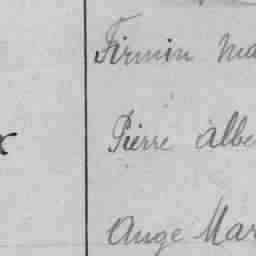 Firmin Ma
Pierre Albe
Ange Mar